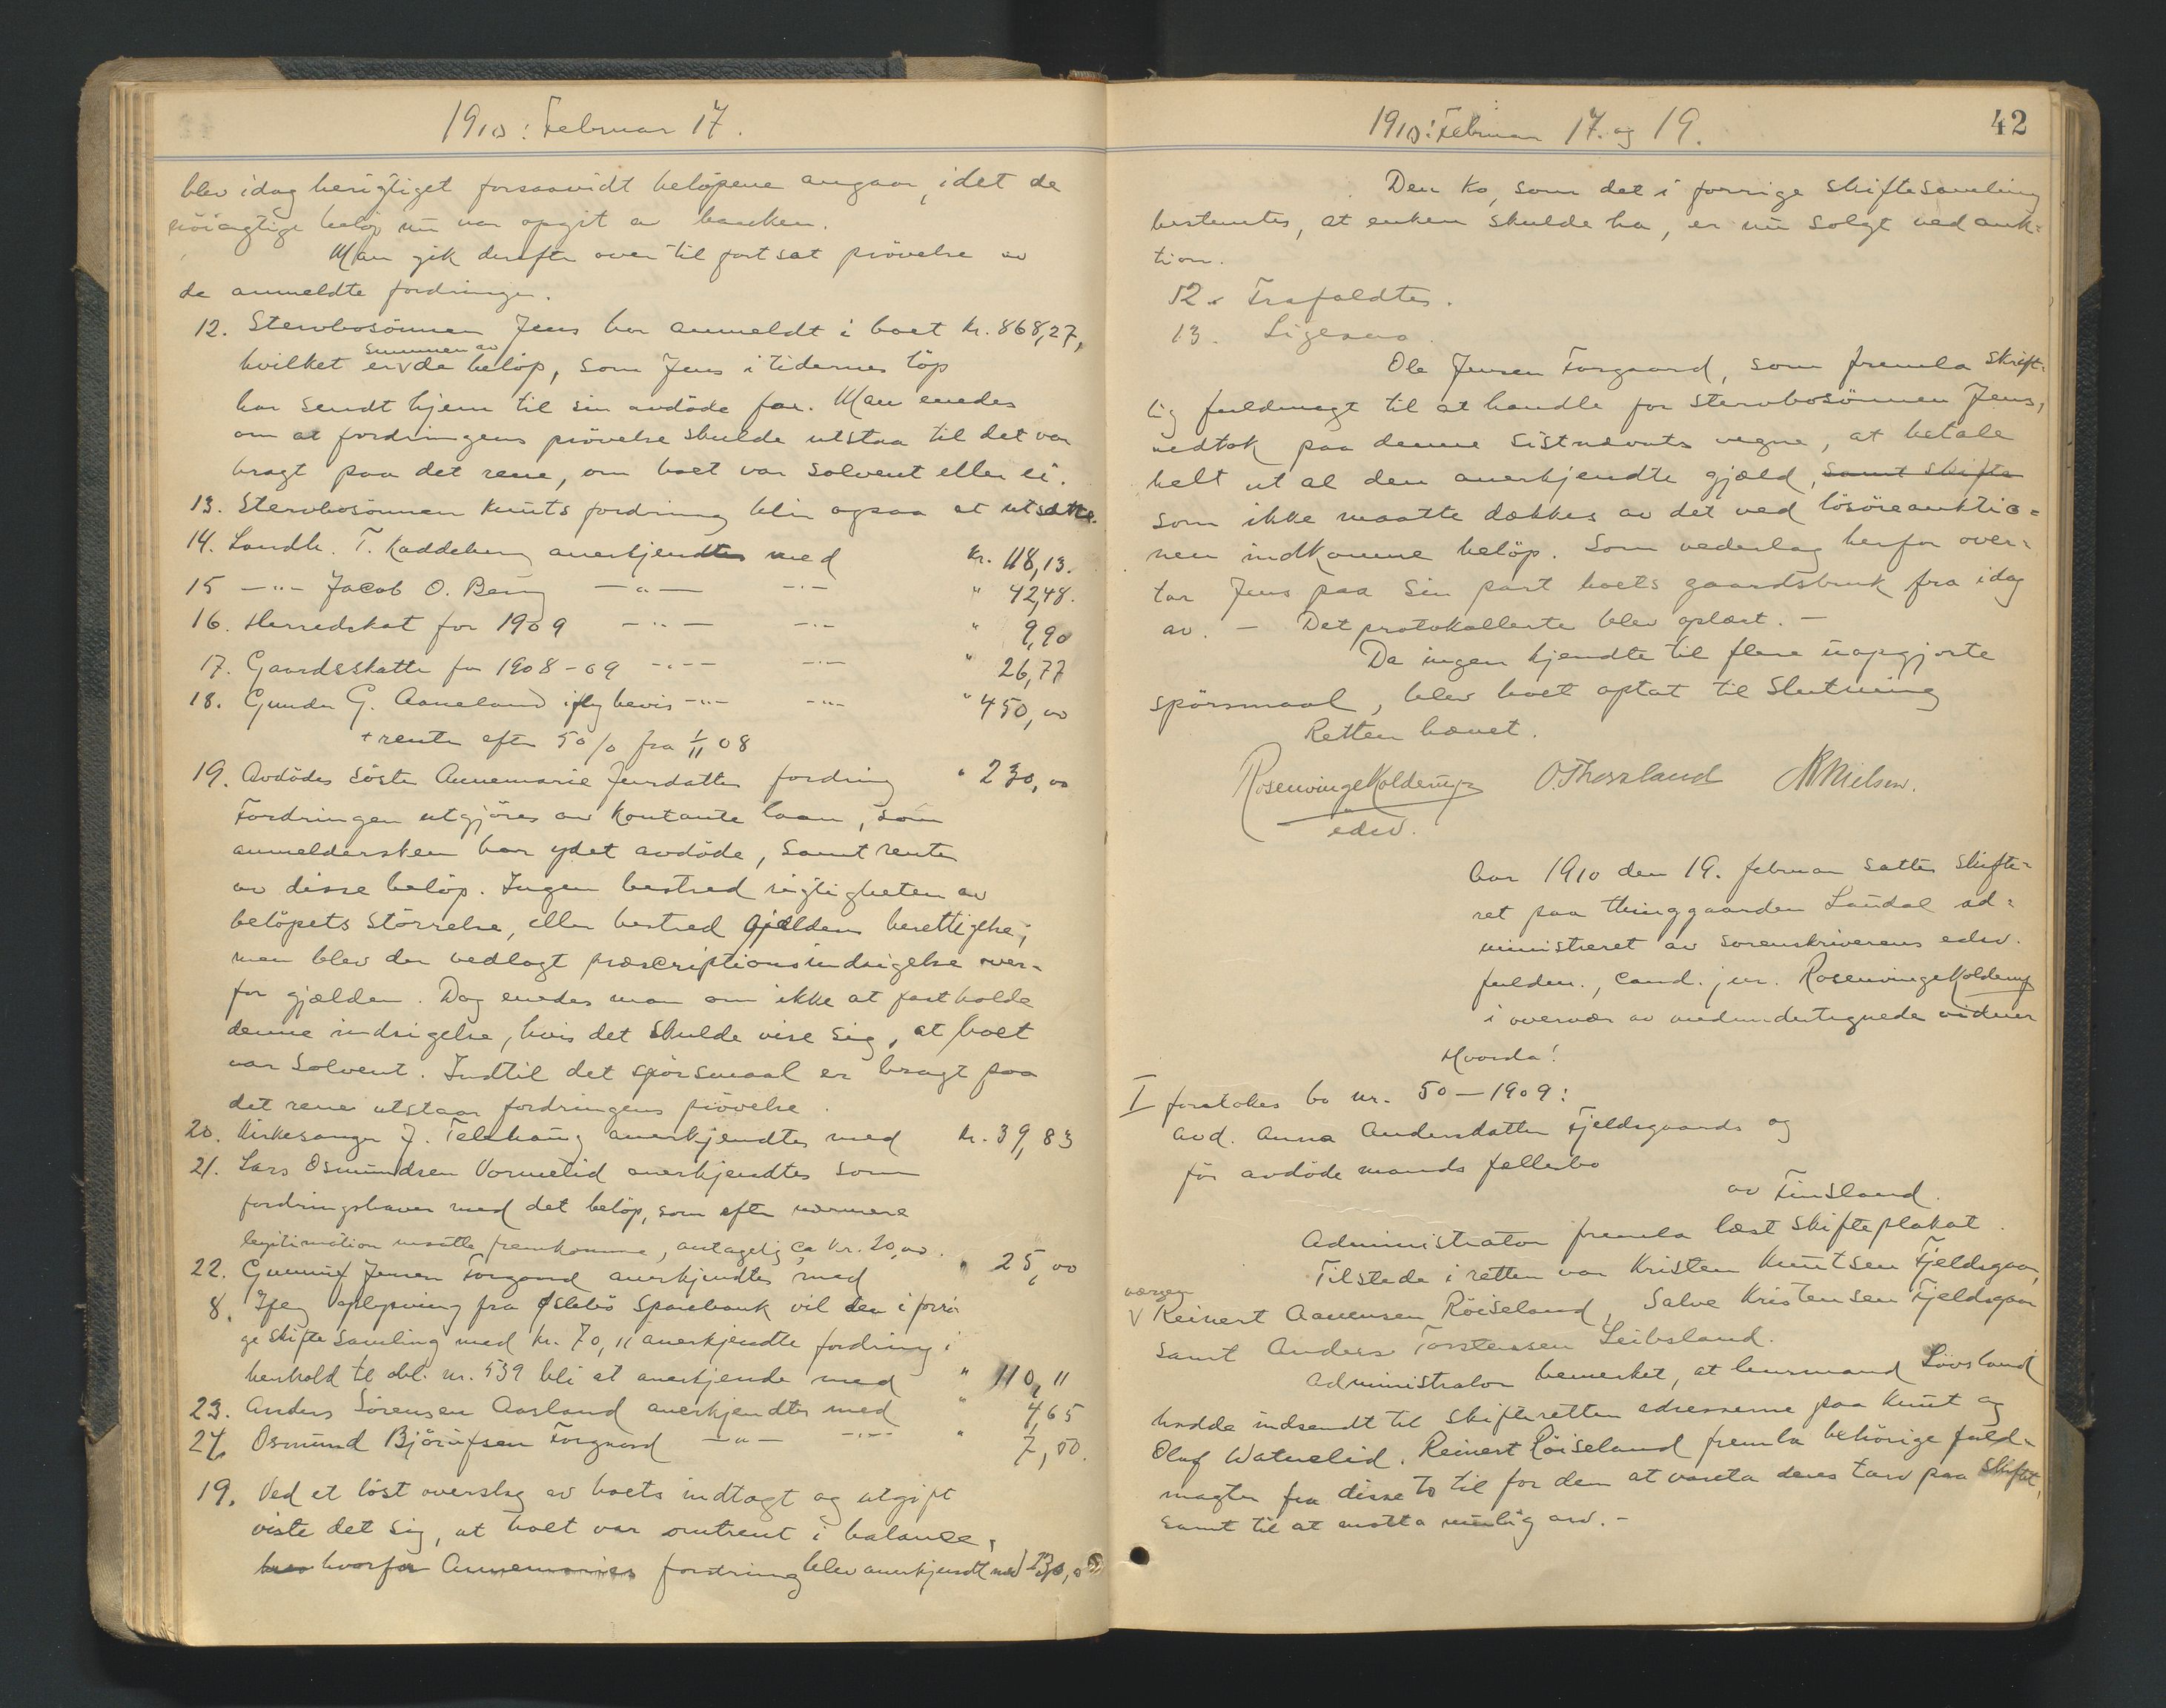 1910: Februar 17.
blev idag berigtiget forsaavidt beløpene angaar, idet de
nöiagtige beløp nu var opgit av banken.
Man gik derefter over til fortsat prövelse av
de anmeldte fordringer.
12. Stervbosönnen Jens har anmeldt i boet kr. 868,27,
summen av
hvilket er v de belöp, som Jens i tidernes löp
har sendt hjem til sin avdöde far. Man enedes
om at fordringens prövelse skulde utstaa til det var
bragt paa det rene, om boet var solvent eller ei.
13. Stervbosönnen Knuts fordring blir ogsaa at utsætte.
14. Landh. T. Kaddeberg anerkjendtes med kr. 118,13.
15 -"- Jacob O. Berg -"- -"- " 42,48.
16. Herredskat for 1909 -"- -"- " 9,90
17. Gaardsskatter for 1908-09 -"- -"- " 26,77
18. Gunder G. Aaneland iflg bevis -"- -"- " 450,00
+ renter efter 5 o/o fra 1/11 08
19. Avdödes söster Annemarie Jensdatters fordring " 230,00
Fordringen utgjöres av kontante laan, som
anmeldersken har ydet avdöde, samt renter
av disse belöp. Ingen bestred rigtigheten av
belöpets störrelse, eller bestred gjælden berettigelse;
men blev der nedlagt præscriptionsindsigelse over-
for gjælden. Dog enedes man om ikke at fastholde
denne indsigelse, hvis det skulde vise sig, at boet
var solvent. Indtil det spörsmaal er bragt paa
det rene utstaar fordringens prövelse.
20. Kirkesanger J. Telehaug anerkjendtes med kr. 39,83
21. Lars Osmundsen Vormelid anerkjendtes som
fordringshaver med det belöp, som efter nærmere
legitimation maatte fremkomme, antagelig ca kr. 20,00.
22. Gunnuf Jensen Forgaard anerkjendtes med " 25,00
8. Ifølg oplysning fra Øslebö Sparebank vil den i forri
ge skiftesamling med kr. 70,11 anerkjendte fordring i
henhold til obl. nr. 539 bli at anerkjende med " 110,11
23. Anders Sörensen Aasland anerkjendtes med " 4,65
24. Osmund Björnufsen Forgaard -"- -"- " 7,50.
19. Ved et löst overslag av boets indtægt og utgift
viste det sig, at boet var omtrent i balance,
hvorfor Annemaries fordring blev anerkjendt med 230,00
1910: Februar 17. og 19.
42
Den ko, som det i forrige skiftesamling
bestemtes, at enken skulde ha, er nu solgt ved auk=
tion.
12. Frafaldtes.
13. Ligesaa.
Ole Jensen Forgaard, som fremla skrift=
lig fuldmagt til at handle for stervbosönnen Jens,
vedtok paa denne sistnævnts vegne, at betale
helt ut al den anerkjendte gjæld, samt skifte
som ikke maatte dækkes av det ved lösöreauktio=
nen indkomne belöp. Som vederlag herfor over=
tar Jens paa sin part boets gaardsbruk fra idag
av. - Det protokollerte blev oplæst. -
Da ingen kjendte til flere uopgjorte
spörsmaal, blev boet optat til slutning
Retten hævet.
Rosenvinge Kolderup O. Thorsland NNielsen.
edsv.
Aar 1910 den 19. februar sattes skifte=
ret paa thinggaarden Laudal ad=
ministreret av sorenskriverens edsv.
fuldm., cand. jur. Rosenvinge Kolderup
i overvær av medundertegnede vidner
Hvorda!
I foretokes bo nr. 50-1909:
avd. Anna Andersdatter Fjeldsgaards og
för avdöde mands fellesbo
av Finsland.
Administrator fremla læst skifteplakat.
Tilstede i retten var Kristen Knutsen Fjeldsgaar,
værgen
v Reinert Aanensen Röiseland, Salve Kristensen Fjeldsgaar
samt Anders Torstensen Leibsland.
Administrator bemerket, at lensmand Lövsland
hadde indsendt til skifteretten adresserne paa Knut og
Oluf Watnelid. Reinert Röiseland fremla behörige fuld=
magter fra disse to til for dem at vareta deres tarv paa skiftet,
samt til at motta mulig arv. -